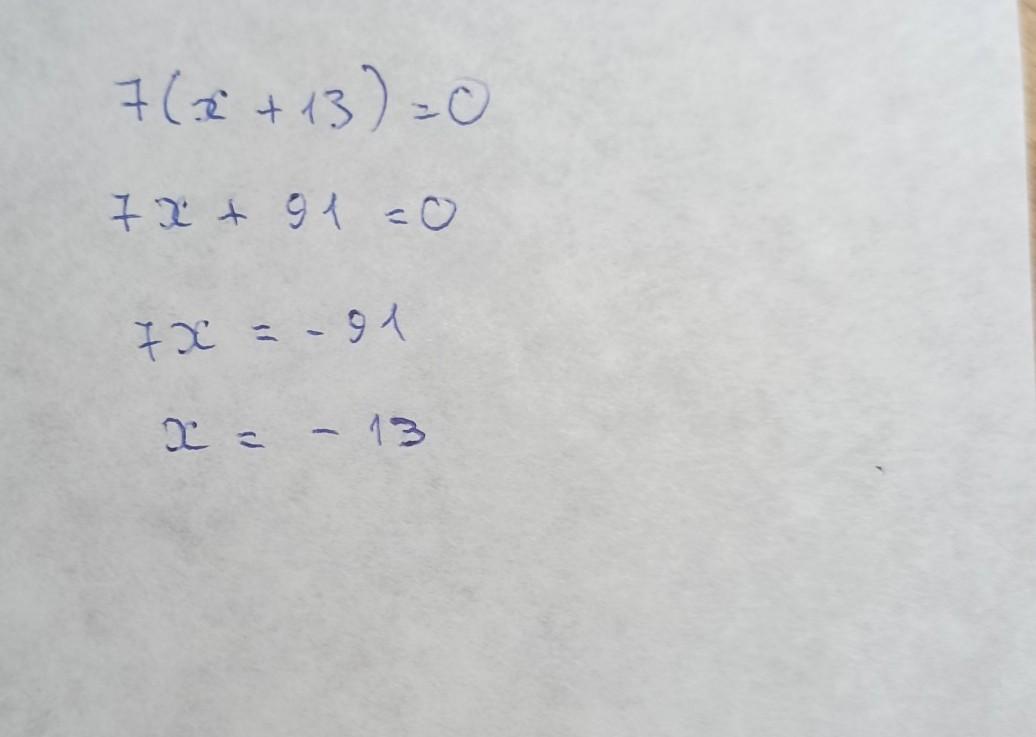 7(x + 13) = 0
7x + 91 = 0
7x = - 91
x = - 13